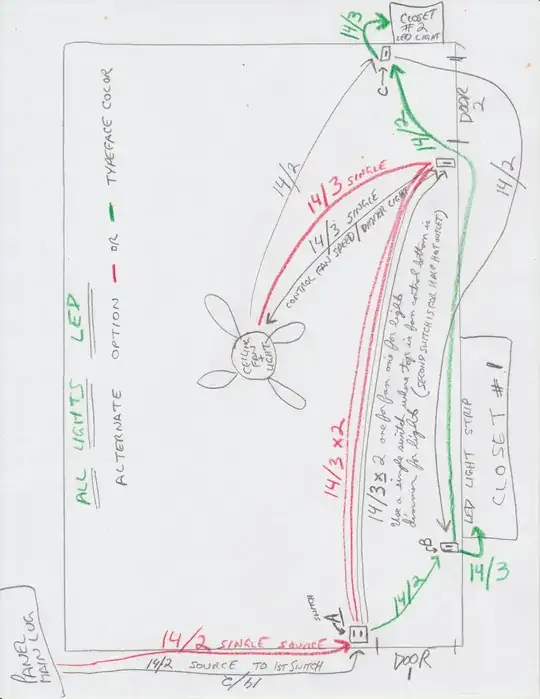 CLOSET
# 2
LED LIGHT
14/3
C
DOOR
2
14/2
14/2
14/2
14/3 SINGLE
14/3 SINGLE
CONTROL FAN SPEED / DIMMER LIGHT
CEILING
FAN
+
LIGHT
ALL LIGHTS LED
ALTERNATE OPTION — OR — TYPEFACE COLOR
14/3 x 2
14/3 x 2 one for fan one for lights
Use a single switch where top is fan control bottom is
dimmer for lights (SECOND SWITCH IS FOR HALF HOT OUTLET)
LED LIGHT STRIP
CLOSET #1
B
14/3
14/2
SWITCH
A
DOOR
1
PANEL
MAIN LUG
14/2 SINGLE SOURCE
14/2 SOURCE TO 1ST SWITCH
14/2